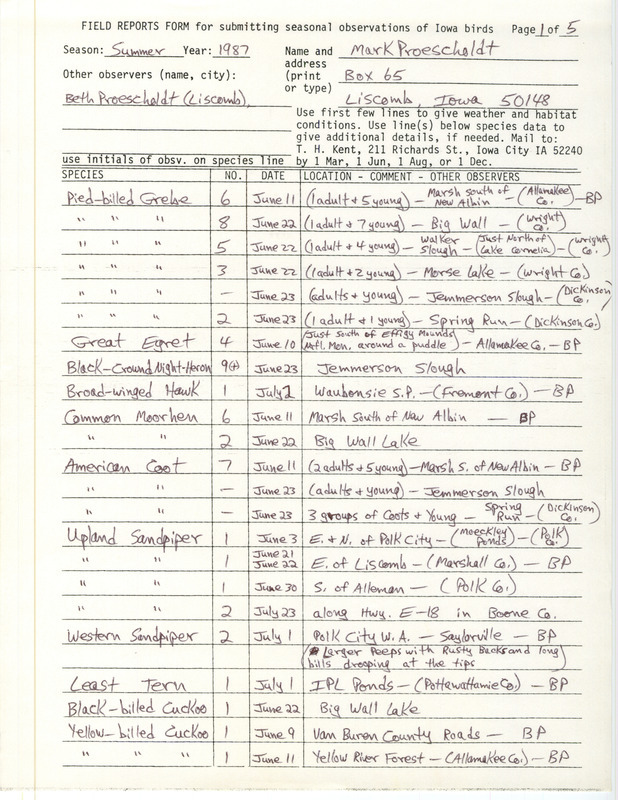 FIELD REPORTS FORM for submitting seasonal observations of Iowa birds Page 1 of 5
Season: Summer Year: 1987 Name and address (print or type) Mark Proescholdt
Other observers (name, city): Box 65
Beth Proescholdt (Liscomb), Liscomb, Iowa 50148
Use first few lines to give weather and habitat
conditions. Use line(s) below species data to
give additional details, if needed. Mail to:
T. H. Kent, 211 Richards St., Iowa City IA 52240
use initials of obsv. on species line by 1 Mar, 1 Jun, 1 Aug, or 1 Dec.
SPECIES NO. DATE LOCATION - COMMENT - OTHER OBSERVERS
Pied-billed Grebe 6 June 11 (1 adult + 5 young) - Marsh south of New Albin - (Allamakee Co.) - BP
" " " 8 June 22 (1 adult + 7 young) - Big Wall - (Wright Co.)
" " " 5 June 22 (1 adult + 4 young) - Walker Slough - (Just North of Lake Cornelia) - (Wright Co.)
" " " 3 June 22 (1 adult + 2 young) - Morse Lake - (Wright Co.)
" " " — June 23 (adults + young) - Jemmerson Slough - (Dickinson Co.)
" " " 2 June 23 (1 adult + 1 young) - Spring Run - (Dickinson Co.)
Great Egret 4 June 10 (Just South of Effigy Mounds Natl. Mon. around a puddle) - Allamakee Co. - BP
Black-Crownd Night-Heron 9(+) June 23 Jemmerson Slough
Broad-winged Hawk 1 July 2 Waubonsie S.P. - (Fremont Co.) - BP
Common Moorhen 6 June 11 Marsh South of New Albin - BP
" " 2 June 22 Big Wall Lake
American Coot 7 June 11 (2 adults + 5 young) - Marsh S. of New Albin - BP
" " — June 23 (adults + young) - Jemmerson Slough
" " — June 23 3 groups of Coots & Young - Spring Run - (Dickinson Co.)
Upland Sandpiper 1 June 3 E. + N. of Polk City - (Moeckley Ponds) - (Polk Co.)
" " 1 June 21 June 22 E. of Liscomb - (Marshall Co.) - BP
" " 1 June 30 S. of Alleman - (Polk Co.)
" " 2 July 23 along Hwy. E-18 in Boone Co.
Western Sandpiper 2 July 1 Polk City W.A. - Saylorville - BP
(Larger Peeps with Rusty Backs and long
bills drooping at the tips)
Least Tern 1 July 1 IPL Ponds - (Pottawattamie Co.) - BP
Black-billed Cuckoo 1 June 22 Big Wall Lake
Yellow-billed Cuckoo 1 June 9 Van Buren County Roads - BP
" " " 1 June 11 Yellow River Forest - (Allamakee Co.) - BP